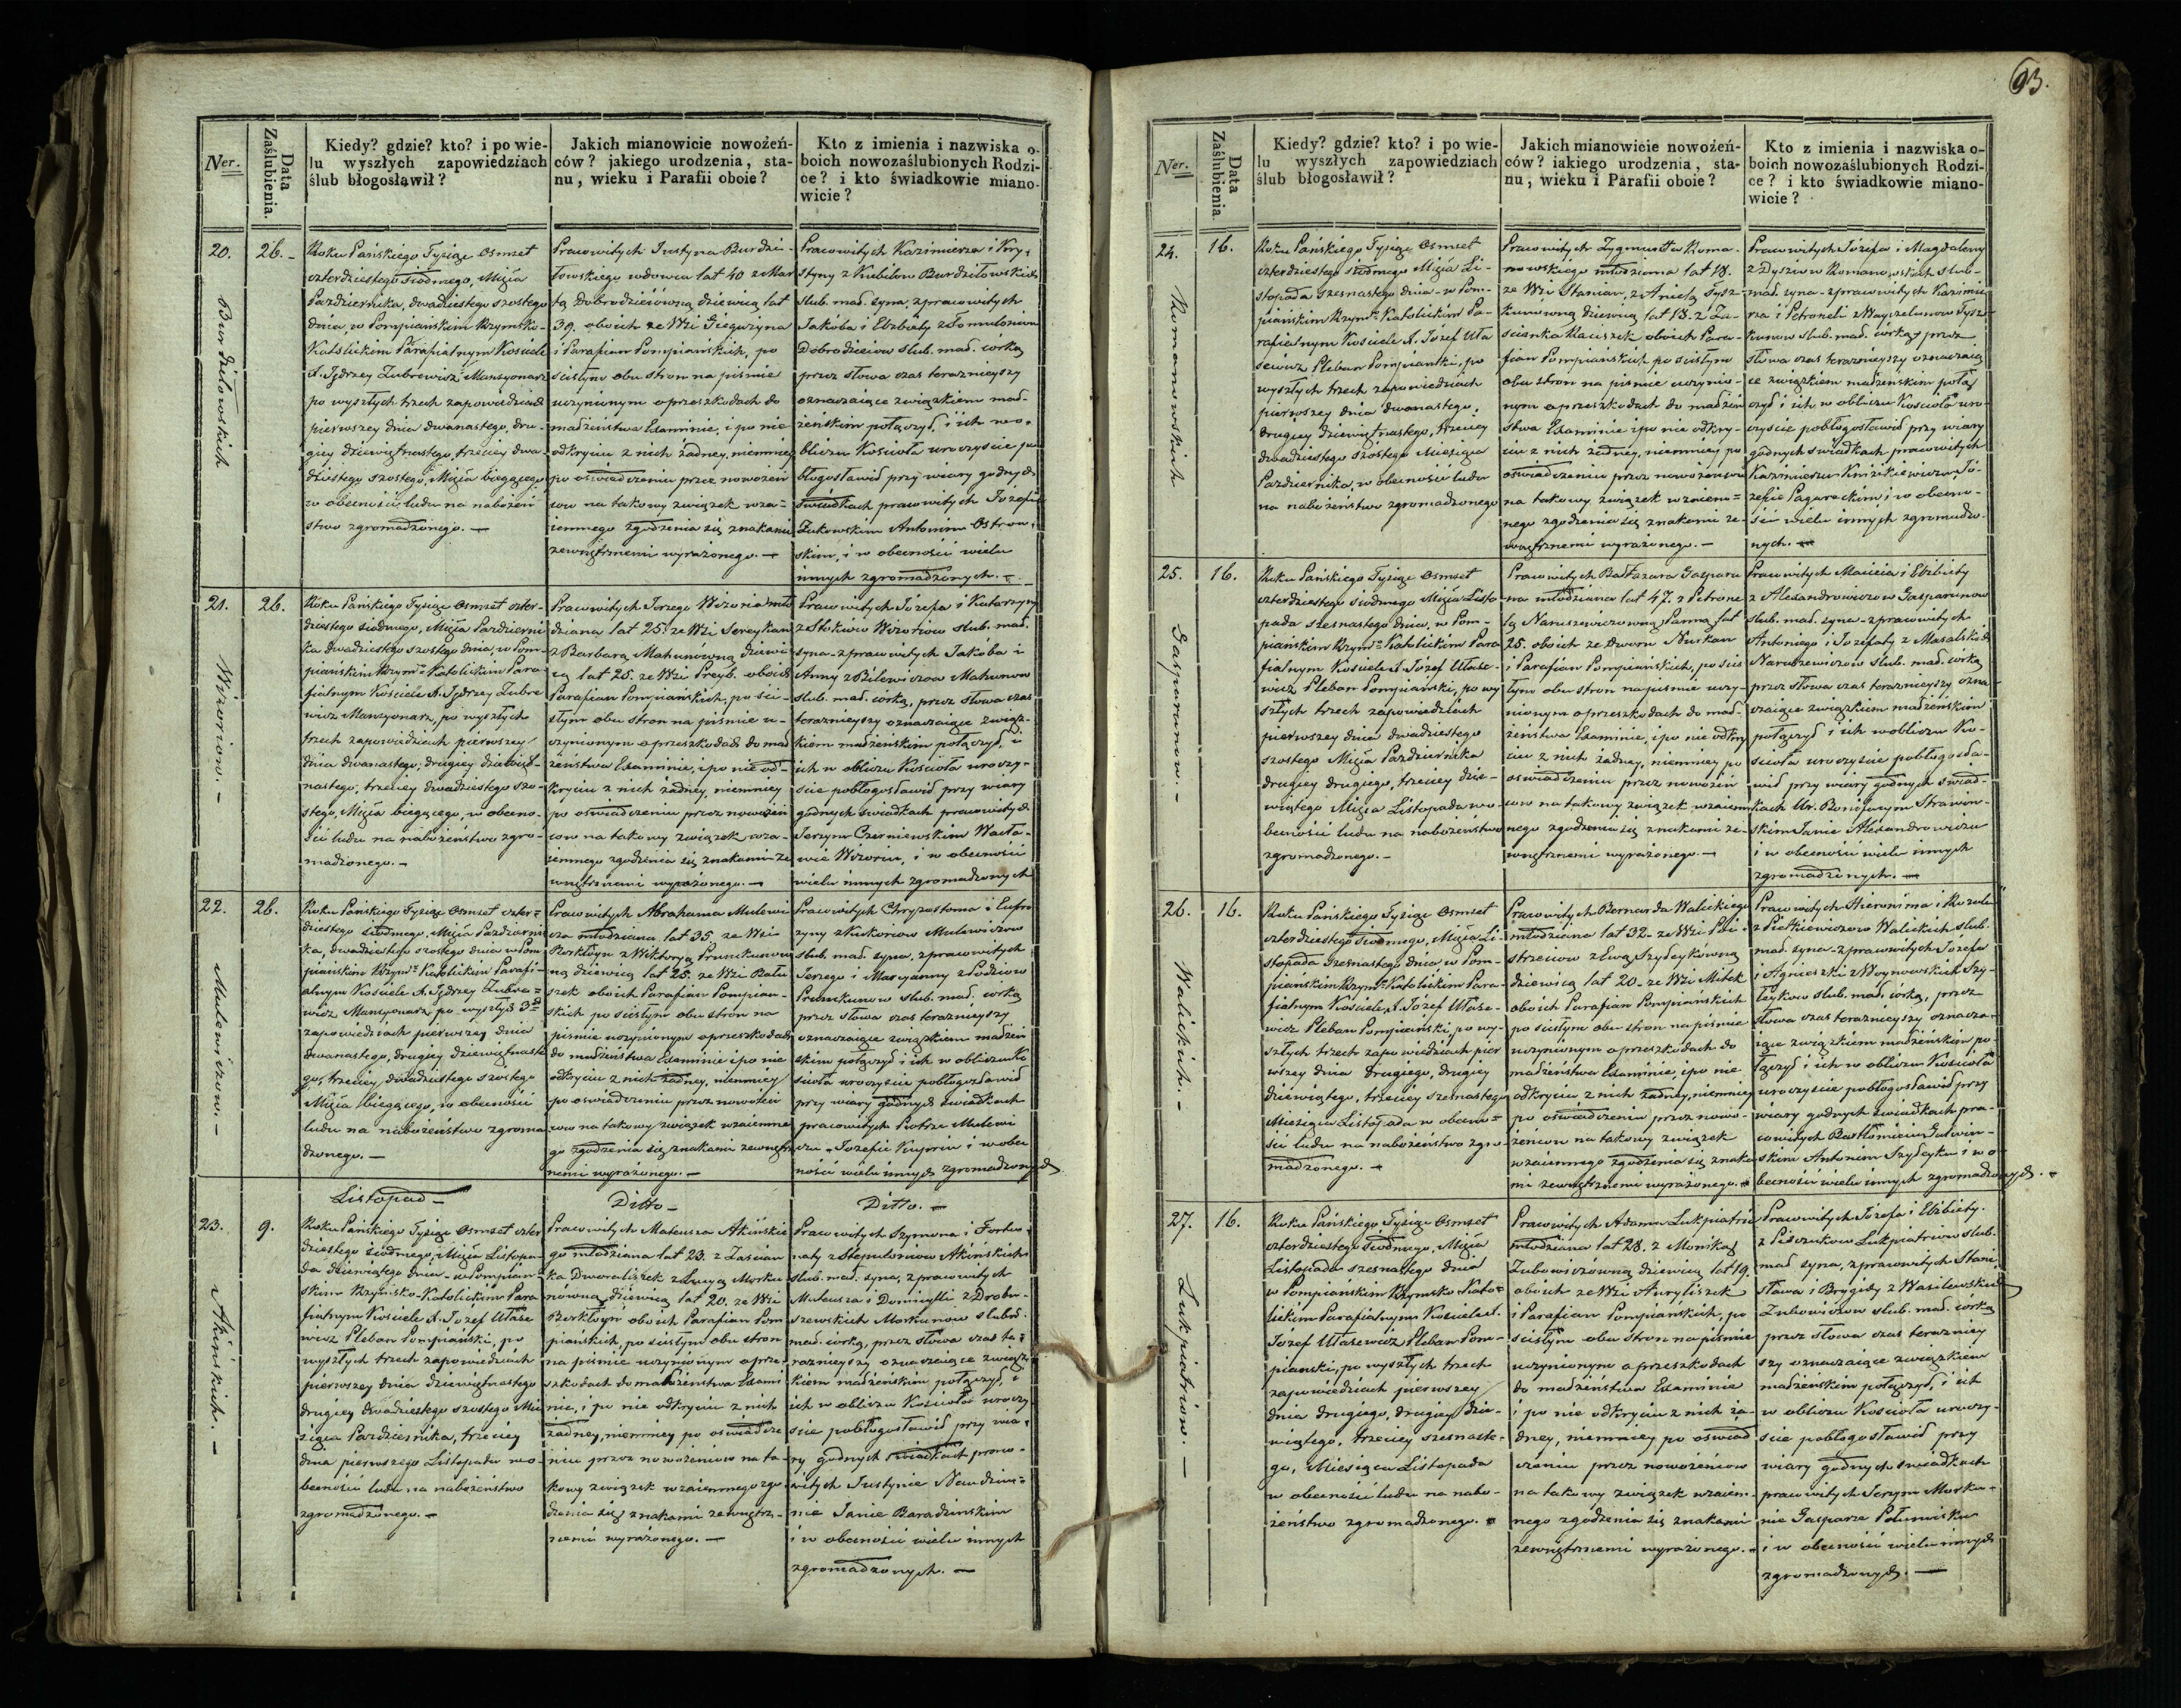 93.
Ner.
Data Zaślubienia.
Kiedy? gdzie? kto? i po wie-
lu wyszłych zapowiedziach
ślub błogosławił?
Jakich mianowicie nowożeń-
ców? jakiego urodzenia, sta-
nu, wieku i Parafii oboie?
Kto z imienia i nazwiska o-
boich nowozaślubionych Rodzi-
ce? i kto świadkowie miano-
wicie?
20.
Burdziłowskich
26.
Roku Pańskiego Tysiąc Osmset
czterdziestego siodmego, Mięsia
Pazdziernika, dwadziestego szostego
dnia, w Pompiańskim Rzymsko-
Katolickim Parafialnym Kosciele
X. Jędrzey Zubrewicz Mansyonarz
po wyszłych trzech zapowiedziach
pierwszey dnia dwanastego, dru-
giey dziewiętnastego, trzeciey dwa-
dziestego szostego, Mięsia biegącego
w obecności ludu na nabożeń
stwo zgromadzonego. —
Pracowitych Justyna Burdzi-
łowskiego wdowca lat 40 z Mar
tą Dobrodziejówną dziewicą lat
39. oboich ze Wsi Gieguzyna
i Parafian Pompiańskich, po
scisłym obu stron na piśmie
uczynionym o przeszkodach do
małżeństwa Examinie, i po nie
odkryciu z nich żadney, niemniey
po oświadczeniu przez nowożeń
ców na takowy związek wza-
iemnego zgodzenia się znakami
zewnętrznemi wyrażonego. —
Pracowitych Kazimierza i Kry-
styny z Kubilow Burdziłowskich
slub. mał. syna, z pracowitych
Jakóba i Elzbiety z Tomulonow
Dobrodzieiow slub. mał. corką
przez słowa czas terazniejszy
oznaczaiące związkiem mał-
żeńskim połączył, i ich w o-
bliczu Kościoła uroczyscie po
błogosławił przy wiary godnych
swiadkach pracowitych Jozefie
Żukowskim Antonim Ostrow-
skim, i w obecności wielu
innych zgromadzonych. —
21.
Wizoriow. —
26.
Roku Pańskiego Tysiąc Osmset czter-
dziestego siodmego, Mięsia Pazdzierni
ka dwadziestego szostego dnia, w Pom-
piańskim Rzymo Katolickim Para-
fialnym Kosciele X. Jędrzey Zubre
wicz Mansyonarz, po wyszłych
trzech zapowiedziach pierwszey
dnia dwanastego, drugiey dziewięt-
nastego, trzeciey dwadziestego szo-
stego, Mięsia biegącego, w obecno-
ści ludu na nabożeństwo zgro-
madzonego. —
Pracowitych Jerzego Wizoria mło
dziana lat 25. ze Wsi Sereykan
z Barbarą Mahunówną dziewi
cą lat 25. ze Wsi Preyb. oboich
Parafian Pompiańskich, po sci-
słym obu stron na piśmie u-
czynionym o przeszkodach do mał
żeństwa Examinie, i po nie od-
kryciu z nich żadney, niemniey
po oswiadczeniu przez nowożeń
ców na takowy związek wza-
iemnego zgodzenia się znakami ze
wnętrznemi wyrażonego. —
Pracowitych Józefa i Katarzyny
z Stokow Wizoriow slub. mał.
syna - z pracowitych Jakóba i
Anny z Bilewiczow Mahunow
slub. mał. corką, przez słowa czas
terazniejszy oznaczaiące związ-
kiem małżeńskim połączył, i
ich w obliczu Kościoła uroczy-
scie pobłogosławił przy wiary
godnych swiadkach pracowitych
Jerzym Czerniewskim Wacła-
wie Wizoriu, i w obecności
wielu innych zgromadzonych
22.
Mulewiczow. —
26.
Roku Pańskiego Tysiąc Osmset czter=
dziestego siodmego, Mięsia Pazdzierni
ka, dwadziestego szostego dnia w Pom
piańskim Rzymo Katolickim Parafi-
alnym Kosciele X. Jędrzey Zubre=
wicz Mansyonarz po wyszłych 3ch
zapowiedziach pierwszey dnia
dwanastego, drugiey dziewiętnaste
go, trzeciey dwadziestego szóstego
Mięsia biegącego, w obecności
ludu na nabożeństwo zgroma
dzonego. —
Pracowitych Abrahama Mulewi
cza młodziana lat 35 ze Wsi
Berktoyn z Wiktoryą Prumkunow
ną dziewicą lat 25. ze Wsi Ratu
szek oboich Parafian Pompiań-
skich po scisłym obu stron na
piśmie uczynionym o przeszkodach
do małżeństwa Examinie i po nie
odkryciu z nich żadney, niemniey
po oswiadczeniu przez nowożeń
cow na takowy związek wzaiemne
go zgodzenia się znakami zewnętrz
nemi wyrażonego. —
Pracowitych Chryzostoma i Eufro
zyny z Kukoriow Mulewiczow
slub. mał. syna, z pracowitych
Jerzego i Maryanny z Podziow
Prumkunow slub. mał. córką
przez słowa czas terazniejszy
oznaczaiące związkiem małżeń
skim połączył i ich w obliczu Ko
scioła uroczyscie pobłogosławił
przy wiary godnych swiadkach
pracowitych Piotrze Mulewi
czu, Jozefie Kuporiu i w obec
ności wielu innych zgromadzonych
Listopad —
Ditto —
Ditto. —
23.
Akińskich. —
9.
Roku Pańskiego Tysiąc Osmset czter
dziestego siodmego, Mięsia Listopa-
da dziewiątego dnia - w Pompiań-
skim Rzymsko-Katolickim Para
fialnym Kosciele X. Józef Utase
wicz Pleban Pompiański, po
wyszłych trzech zapowiedziach
pierwszey dnia dziewiętnastego
drugiey dwadziestego szostego Mie
siąca Pazdziernika, trzeciey
dnia pierwszego Listopada w o-
becności ludu na nabożeństwo
zgromadzonego. —
Pracowitych Mateusza Akińskie
go młodziana lat 23. z Zascian
ka Dworaliszek z Łucyą Morku
nowną dziewicą lat 20. ze Wsi
Berktoyń oboich Parafian Pom
piańskich, po scisłym obu stron
na piśmie uczynionym o prze-
szkodach do małżeństwa Exami
nie, i po nie odkryciu z nich
żadney, niemniey po oswiadcze
niu przez nowożeńcow na ta-
kowy związek wzaiemnego zgo
dzenia się znakami zewnętrz-
nemi wyrażonego. —
Pracowitych Szymona i Fortu-
naty z Stepuloniow Akińskich
slub. mał. syna, z pracowitych
Mateusza i Domicylli z Drobu-
szewskich Morkunow slubn.
mał. corką, przez słowa czas te-
razniejszy oznaczaiące związ-
kiem małżeńskim połączył, i
ich w obliczu Kościoła uroczy
scie pobłogosławił przy wia-
ry godnych swiadkach praco-
witych Justynie Naudziu=
nie Janie Baradzinskim
i w obecności wielu innych
zgromadzonych. —
Ner.
Data Zaślubienia
Kiedy? gdzie? kto? i po wie-
lu wyszłych zapowiedziach
ślub błogosławił?
Jakich mianowicie nowożeń-
ców? iakiego urodzenia, sta-
nu, wieku i Parafii oboie?
Kto z imienia i nazwiska o-
boich nowozaślubionych Rodzi-
ce? i kto świadkowie miano-
wicie?
24.
Romanowskich
16.
Roku Pańskiego Tysiąc Osmset
czterdziestego siodmego Mięsia Li-
stopada szesnastego dnia - w Pom-
piańskim Rzymo Katolickim Pa-
rafialnym Kosciele X. Józef Uta
sewicz Pleban Pompiański, po
wyszłych trzech zapowiedziach
pierwszey dnia dwanastego,
drugiey dziewiętnastego, trzeciey
dwadziestego szóstego Miesiąca
Pazdziernika, w obecności ludu
na nabożeństwo zgromadzonego
Pracowitych Zygmunta Roma-
nowskiego młodziana lat 18.
ze Wsi Stanian, z Anielą Tysz-
kunowną dziewicą lat 18. z Za-
scianka Raciszek oboich Para-
fian Pompiańskich po scisłym
obu stron na piśmie uczynio-
nym o przeszkodach do małżeń
stwa Examinie i po nie odkry-
ciu z nich żadney, niemniey po
oswiadczeniu przez nowożeńcow
na takowy związek wzaiem=
nego zgodzenia się znakami ze-
wnętrznemi wyrażonego. —
Pracowitych Józefa i Magdaleny
z Dysiow Romanowskich slub-
mał. syna - z pracowitych Kazimie
rza i Petroneli z Wayszelunow Tysz
kunow slub. mał. córką przez
słowa czas terazniejszy oznaczaią
ce związkiem małżeńskim połą
czył i ich w obliczu Kościoła uro-
czyscie pobłogosławił przy wiary
godnych swiadkach pracowitych
Kazimierzu Knizikiewiczu, Jó-
zefie Pagareckim i w obecno-
ści wielu innych zgromadzo-
nych. —
25.
Gasparunow. —
16.
Roku Pańskiego Tysiąc Osmset
czterdziestego siodmego Mięsia Listo
pada szesnastego dnia, w Pom-
piańskim Rzymo Katolickim Para
fialnym Kosciele X. Józef Utase-
wicz Pleban Pompiański, po wy
szłych trzech zapowiedziach
pierwszey dnia dwadziestego
szostego Mięsia Pazdziernika
drugiey drugiego, trzeciey dzie-
wiątego Mięsia Listopada w o-
becności ludu na nabożeństwo
zgromadzonego. —
Pracowitych Baltazara Gasparu
na młodziana lat 47. z Petrone
lą Naruszewiczowną Panną lat
25. oboich ze Dworu Nurkan
i Parafian Pompiańskich, po scis
łym obu stron na piśmie uczy-
nionym o przeszkodach do mał-
żeństwa Examinie, i po nie odkry
ciu z nich żadney, niemniey po
oswiadczeniu przez nowożeń
cow na takowy związek wzaiem
nego zgodzenia się znakami ze-
wnętrznemi wyrażonego. —
Pracowitych Macieia i Elzbiety
z Alexandrowiczow Gasparunow
slub. mał. syna - z pracowitych
Antoniego i Jozefaty z Masalskich
Naruszewiczow slub. mał. córką
przez słowa czas terazniejszy ozna-
czaiące związkiem małżeńskim
połączył i ich w obliczu Ko-
scioła uroczyscie pobłogosła-
wił przy wiary godnych swiad-
kach Ur. Bonifacym Strawin-
skim Janie Alexandrowiczu
i w obecności wielu innych
zgromadzonych. —
26.
Walickich. —
16.
Roku Pańskiego Tysiąc Osmset
czterdziestego siodmego, Mięsia Li-
stopada szesnastego dnia w Pom-
piańskim Rzymo Katolickim Para-
fialnym Kosciele X. Józef Utase-
wicz Pleban Pompiański, po wy-
szłych trzech zapowiedziach pier
wszey dnia drugiego, drugiey
dziewiątego, trzeciey szesnastego
Miesiąca Listopada w obecno=
ści ludu na nabożeństwo zgro-
madzonego. —
Pracowitych Bernarda Walickiego
młodziana lat 32. ze Wsi Poi-
strzeniow z Ewą Szydeykówną
dziewicą lat 20. ze Wsi Mitek
oboich Parafian Pompiańskich
po scisłym obu stron na piśmie
uczynionym o przeszkodach do
małżeństwa Examinie, i po nie
odkryciu z nich żadney, niemniey
po oświadczeniu przez nowo-
żeńcow na takowy związek
wzaiemnego zgodzenia się znaka
mi zewnętrznemi wyrażonego. —
Pracowitych Hieronima i Rozalii
z Piotkiewiczow Walickich slub.
mał. syna - z pracowitych Józefa
i Agnieszki z Woynowskich Szy-
deykow slub. mał. córką, przez
słowa czas terazniejszy oznacza-
iące związkiem małżeńskim po-
łączył i ich w obliczu Kościoła
uroczyscie pobłogosławił przy
wiary godnych swiadkach pra-
cowitych Bartłomieiu Gatwin-
skim Antonim Szydeyku i w o-
becności wielu innych zgromadzonych. —
27.
Łukpiatriow. —
16.
Roku Pańskiego Tysiąc Osmset
czterdziestego siodmego, Mięsia
Listopada szesnastego dnia
w Pompiańskim Rzymsko Kato=
lickim Parafialnym Kosciele X.
Józef Utasewicz Pleban Pom-
piański, po wyszłych trzech
zapowiedziach pierwszey
dnia drugiego, drugiey dzie-
wiątego, trzeciey szesnaste-
go, Miesiąca Listopada
w obecności ludu na nabo-
żeństwo zgromadzonego. —
Pracowitych Adama Łukpiatria
młodziana lat 28. z Moniką
Zubowiczowną dziewicą lat 19.
oboich ze Wsi Auryliszek
i Parafian Pompiańskich, po
scisłym obu stron na piśmie
uczynionym o przeszkodach
do małżeństwa Examinie
i po nie odkryciu z nich ża-
dney, niemniey po oswiad
czeniu przez nowożeńcow
na takowy związek wzaiem-
nego zgodzenia się znakami
zewnętrznemi wyrażonego. —
Pracowitych Józefa i Elżbiety.
z Pisczukow Łukpiatriow slub.
mał. syna, z pracowitych Stani-
sława i Brygidy z Wasilewskich
Zubowiczow slub. mał. córką
przez słowa czas terazniey
szy oznaczaiące związkiem
małżeńskim połączył, i ich
w obliczu Kościoła uroczy-
scie pobłogosławił przy
wiary godnych swiadkach
pracowitych Jerzym Morku-
nie Gasparze Połumisku
i w obecności wielu innych
zgromadzonych. —